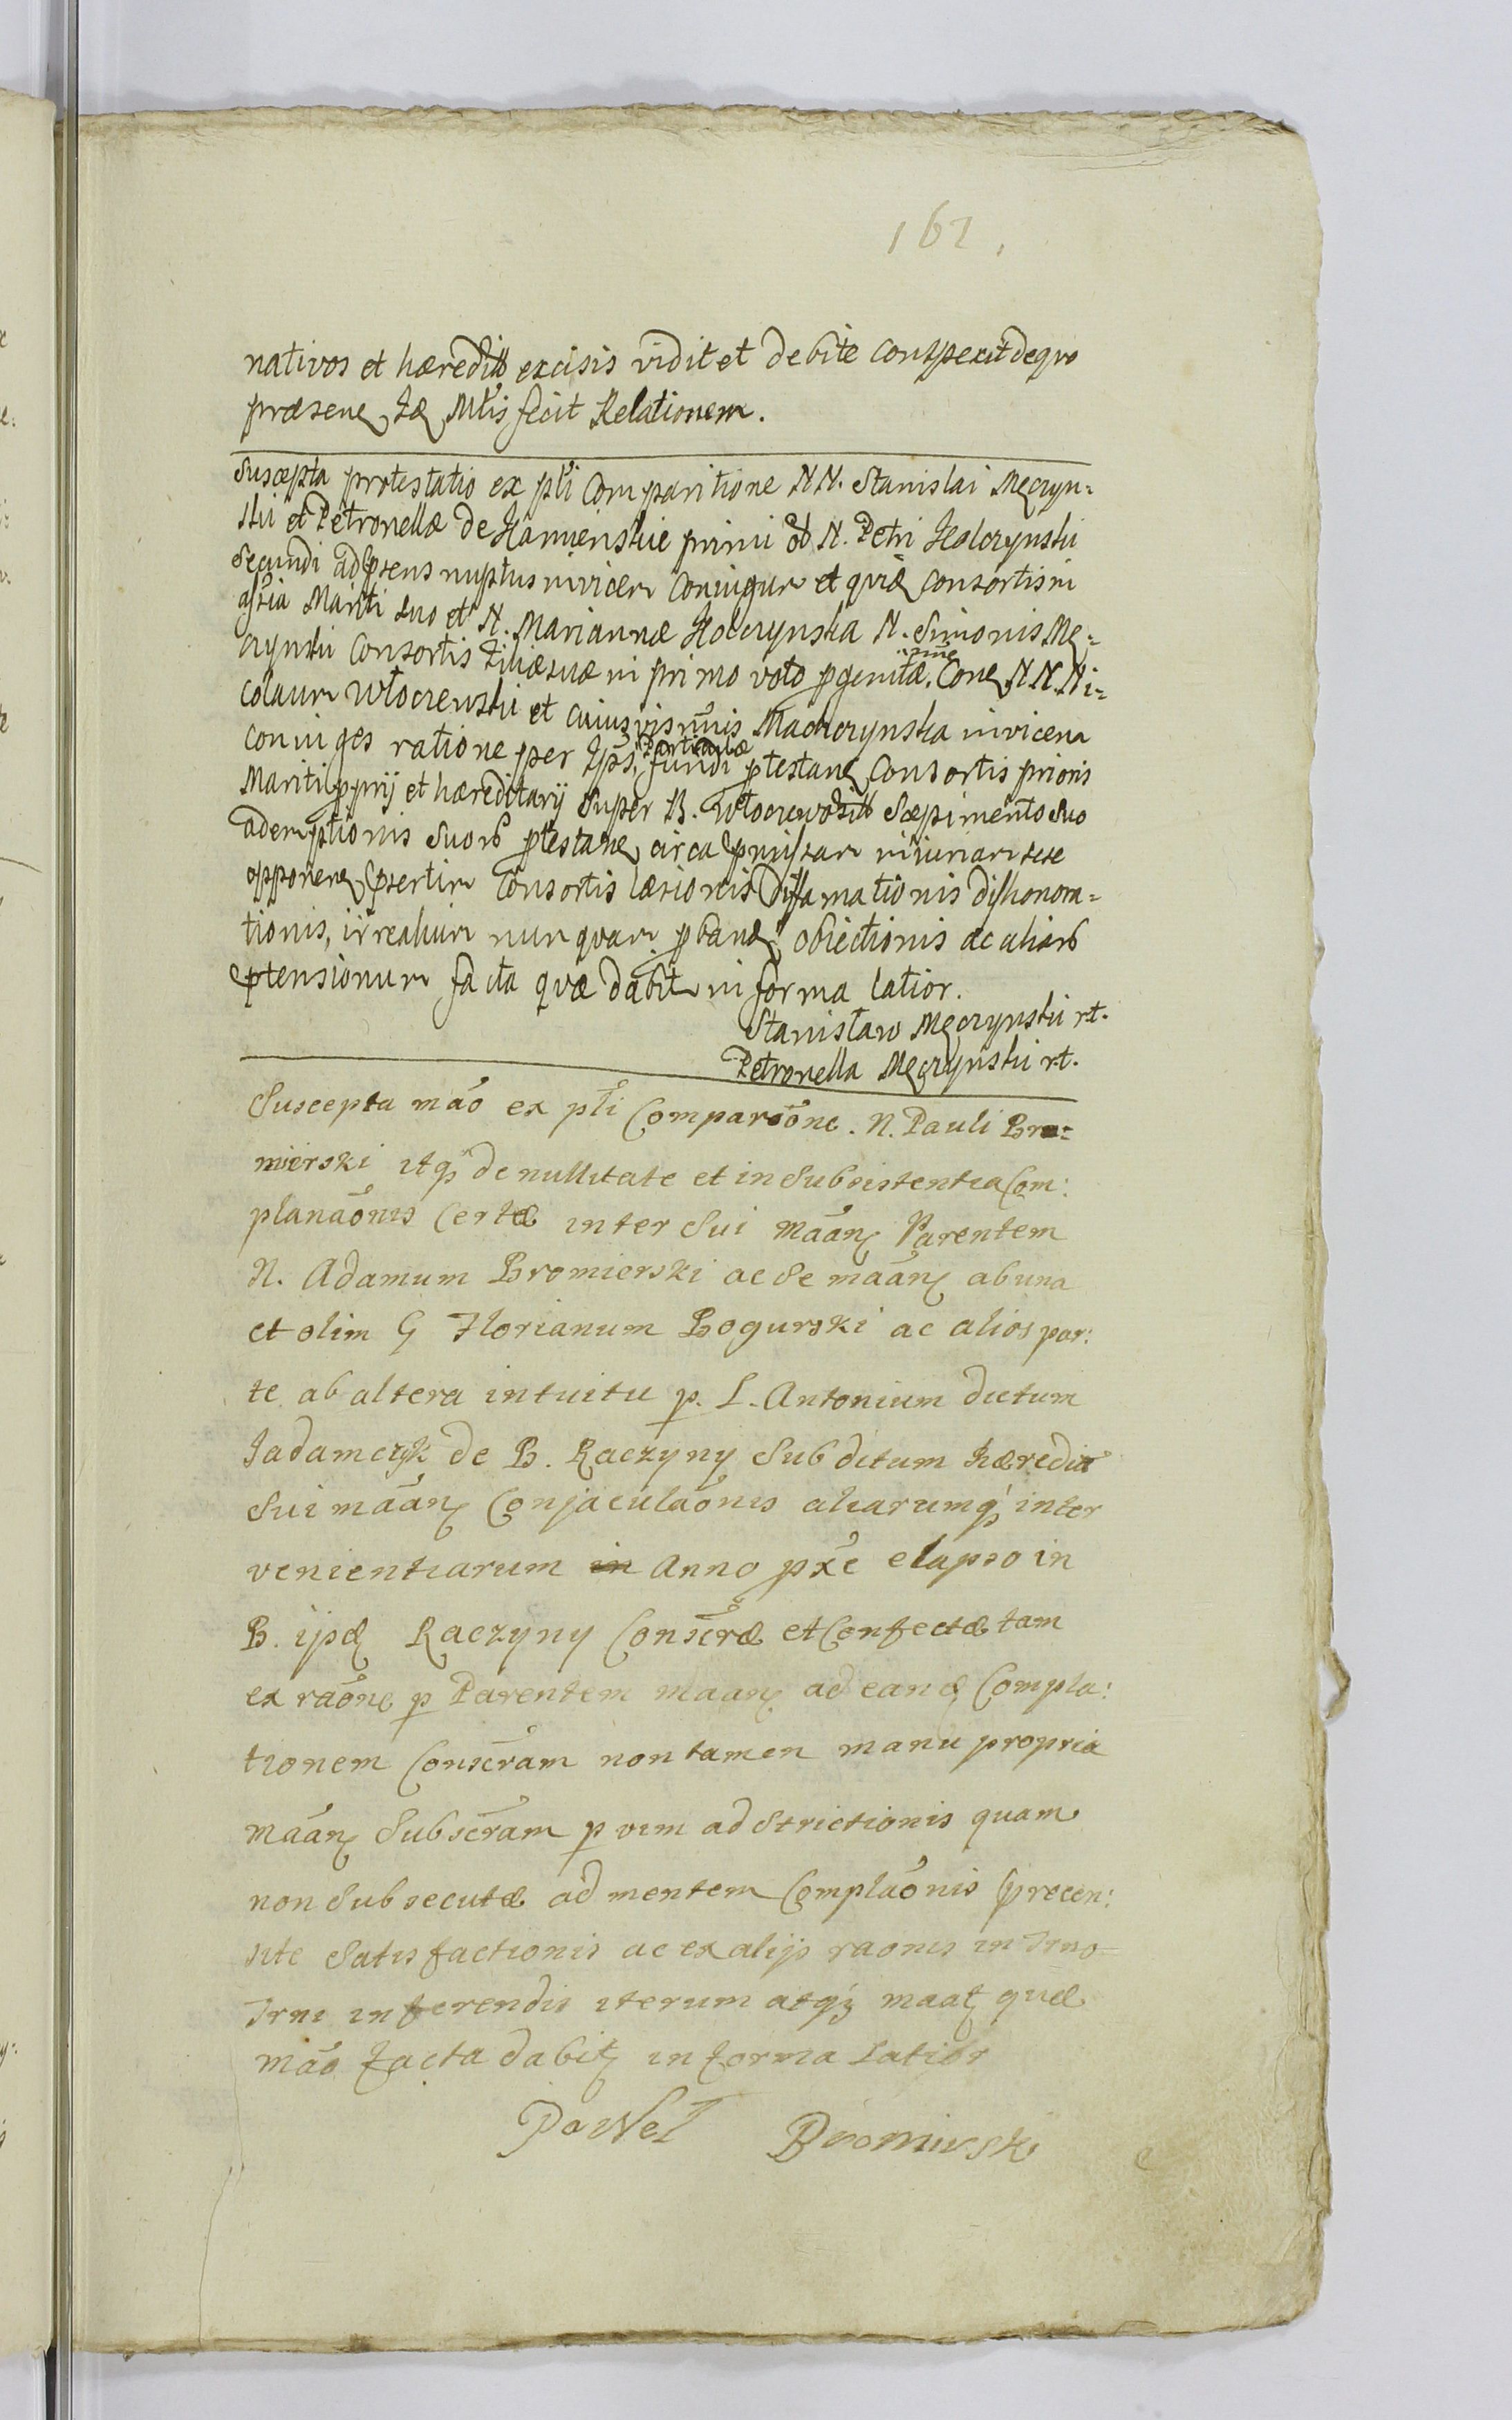 161.
nativos et hæredit excisis vidit et debite conspexit de qvo
præsene Jæ Mtis fecit Relationem.
Suscepta protestatio ex pti Comparitione N N. Stanislai Męczyn=
skii et Petronellæ de primi N. Petri Holczynskii
Secundi ad psens nuptus invicem Coniugum et qvidē consortis in
Mariti suo et N. Mariannæ Holczynska N. Simonis Mę=
czynskii Consortis Filiæ suæ in primo voto pgenitæ. Cone N N. Ni=
colaum Włoczewskii et cuiusvis nnis Machczynska invicem
coniuges ratione per Ips. Particulæ fundi ptestane Consortis prioris
Mariti pprij et hæreditarij super B. Sæpimento suo
ademptionis suorb ptestane circa pmissam iniuriam sese
opponene psertim Consortis læsionis Diffamationis dishonora=
tionis, irrealium nunqvam pbande obiectionis ac aliarb
ptensionum facta qvæ dabit in forma latior.
Stanisław Męczynskii rt.
Petronella Męczynskii rt.
Suscepta mão ex pti Comparõne. N. Pauli Bro=
mierski itq de nullitate et in Subsistentia Com:
planaõnis Certæ inter Sui mãan Parentem
N. Adamum Bromierski ac Se mãan ab una
et olim G Florianum Bogurski ac alios par:
te ab altera intuitu p. L. Antonium dictum
Jadamczyk de B. Raczyny Subditum hæredit
Sui mãan Conjaculaõnis aliarumq inter
venientiarum in Anno pxe elapso in
B. ijsd Raczyny Conscræ et Confectæ tam
ex raõne p Parentem maan ad eand Compla:
tionem Conscram non tamen manu propria
mãan Subscram p vim adstrictionis quam
non Subsecutæ ad mentem Complaõnis precen:
site Satisfactionis ac ex alijs raonis in Trno
Trni inferendis iterum atq maat quæ
mão facta dabit in forma Latior
Paweł Bromierski